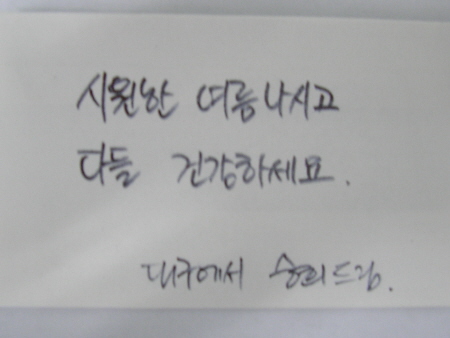 시원한 여름나시고
다들 건강하세요.
대구에서 승희드림.